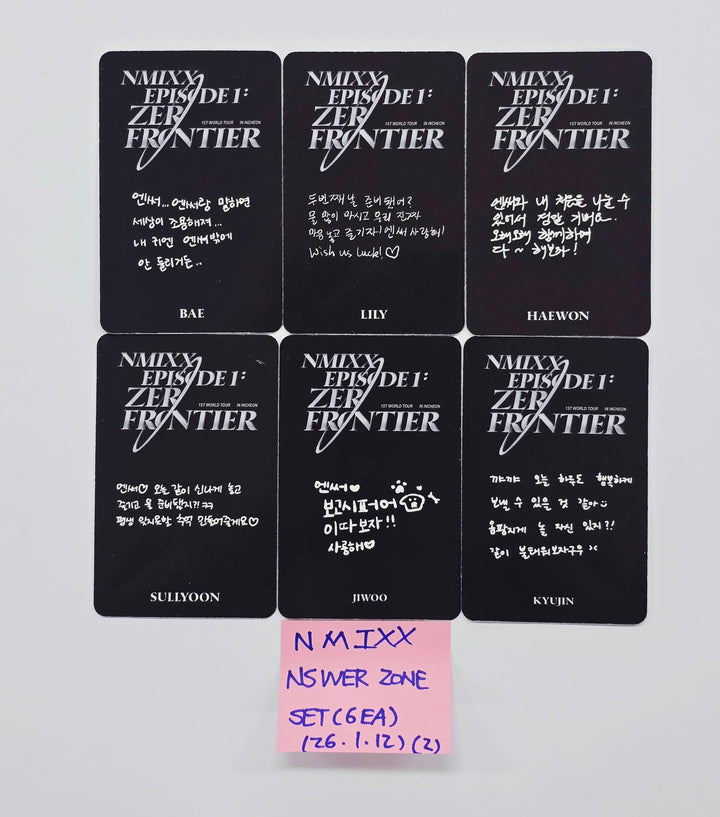 NMIXX
EPISODE 1:
ZERO
FRONTIER
1ST WORLD TOUR IN INCHEON
엔써... 엔써랑 말하면
세상이 조용해져...
내 귀엔 엔써밖에
안 들리거든..
BAE
NMIXX
EPISODE 1:
ZERO
FRONTIER
1ST WORLD TOUR IN INCHEON
두번째날 준비됐어?
물 많이 마시고 우리 진짜
마음 놓고 즐기자! 엔써 사랑해!
Wish us luck! ♡
LILY
NMIXX
EPISODE 1:
ZERO
FRONTIER
1ST WORLD TOUR IN INCHEON
엔써와 내 청춘을 나눌 수
있어서 정말 기뻐요.
오래오래 함께하며
다 ~ 해보자!
HAEWON
NMIXX
EPISODE 1:
ZERO
FRONTIER
1ST WORLD TOUR IN INCHEON
엔써♡ 오늘 같이 신나게 놀고
즐기고 올 준비됐지?! ㅋㅋ
평생 잊지못할 추억 만들어줄게요♡
SULLYOON
NMIXX
EPISODE 1:
ZERO
FRONTIER
1ST WORLD TOUR IN INCHEON
엔써♥
보고시퍼어
이따보자!!
사룽해♥
JIWOO
NMIXX
EPISODE 1:
ZERO
FRONTIER
1ST WORLD TOUR IN INCHEON
꺄꺄 오늘 하루도 행복하게
보낼 수 있을 것 같아
옴팡지게 놀 자신 있지?!
같이 불태워보자구우 ><
KYUJIN
NMIXX
NSWER ZONE
SET(6EA)
('26.1.12)(2)